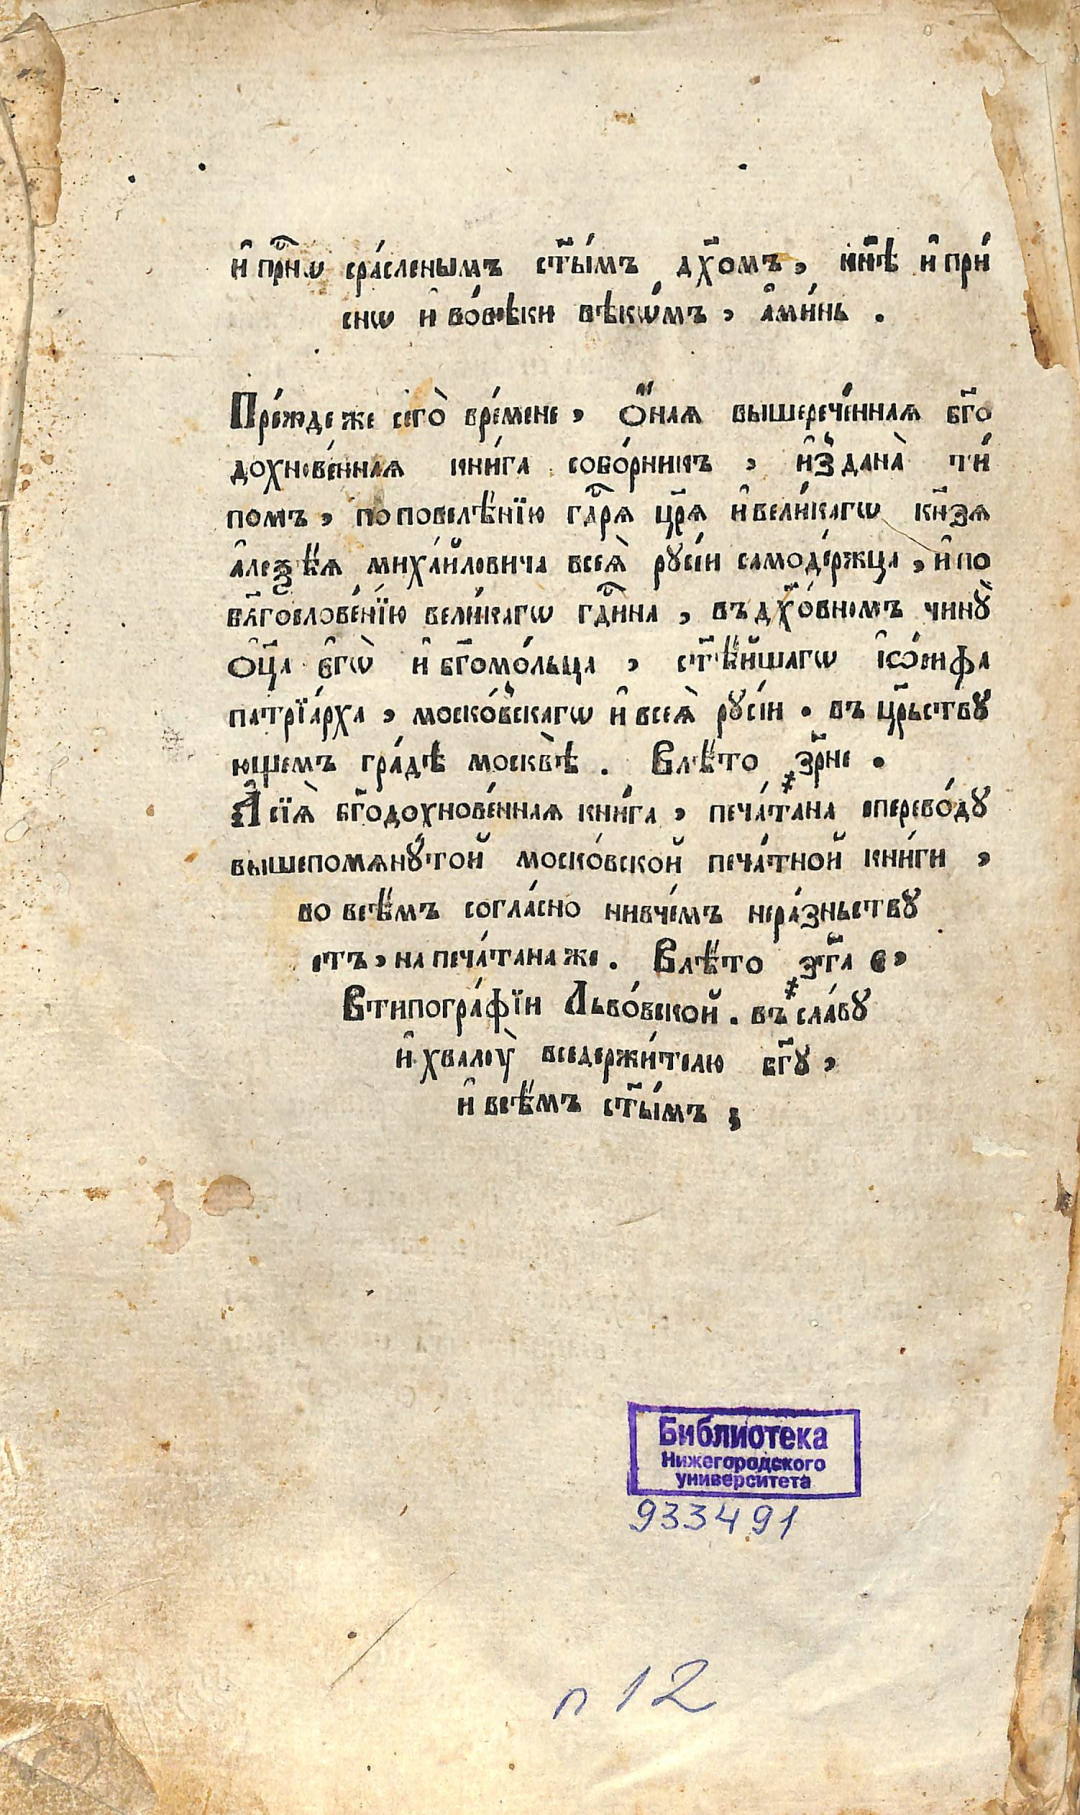 и҆ прⷭ҇нѡ сра́сленымъ ст҃ы́мъ дх҃омъ, нн҃ѣ и҆ при́
снѡ и҆ во́вѣки вѣкѡ́мъ, а҆ми́нь .
Пре́жде же сего̀ вре́мене, Ѻ҆́ная вышерече́нная бг҃о
дохнове́нная кни́га собо́рникъ, и҆здана̀ ти́
помъ, по повелѣ́нїю гдⷭ҇ря цр҃я и҆ вели́кагѡ кн҃зя
а҆леѯѣ́я миха́йловича всея̀ руси́и самоде́ржца, и҆ по
бл҃гослове́нїю вели́кагѡ гдⷭ҇ина, въ дх҃о́вномъ чину̀
ѻц҃а є҆гѡ̀ и҆ бг҃омо́льца, ст҃ѣ́йшагѡ і҆ѡ́сифа
патрїа́рха, моско́вскагѡ и҆ всея̀ руси́и . въ црⷭ҇ьству
ющемъ гра́дѣ москвѣ̀ . Влѣ́то ҂зрн҃е .
А҆ сїя̀ бг҃одохнове́нная кни́га, печа́тана спереводу
вышепомяну́той моско́вской печа́тной кни́ги ,
во всѣ́мъ согла́сно нивче́мъ нера́зньству
етъ, на печа́тана же . Влѣ́то ҂зт҃а є,
Втипогра́фїи Льво́вской . въ сла́ву
и҆ хвалу̀ вседержи́телю бг҃у ,
и҆ всѣ́мъ ст҃ы́мъ ;
Библиотека
Нижегородского
университета
933491
п 12